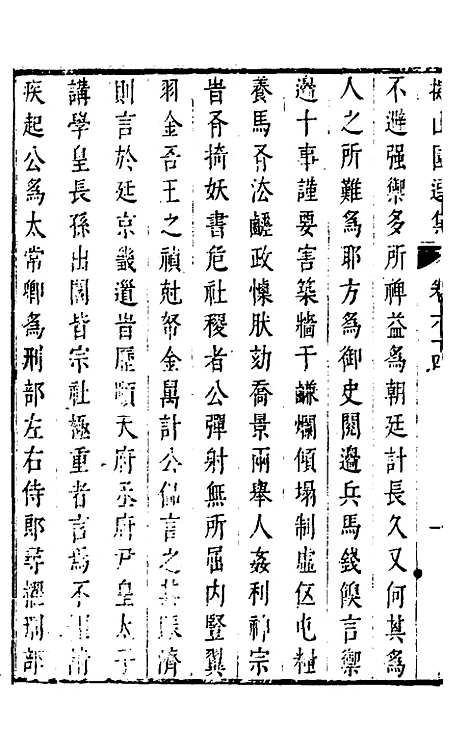 擬山園選集 卷六十四 一
不避强禦多所裨益為朝廷計長久又何其為
人之所難為耶方為御史閱邊兵馬錢餼言禦
邊十事謹要害築牆干鹻爛傾塌制虛伍屯糧
養馬吝法鹺政懍肰劾喬景兩舉人姦利神宗
旹吝掎妖書危社稷者公彈射無所屈内豎翼
羽金吾王之禎尅帑金萬計公侃言之其賑濟
則言於廷京畿遣旹歷順天府丞府尹皇太子
講學皇長孫出閣皆宗社極重者言焉不
疾起公為太常卿為刑部左右侍郎尋擢刑部